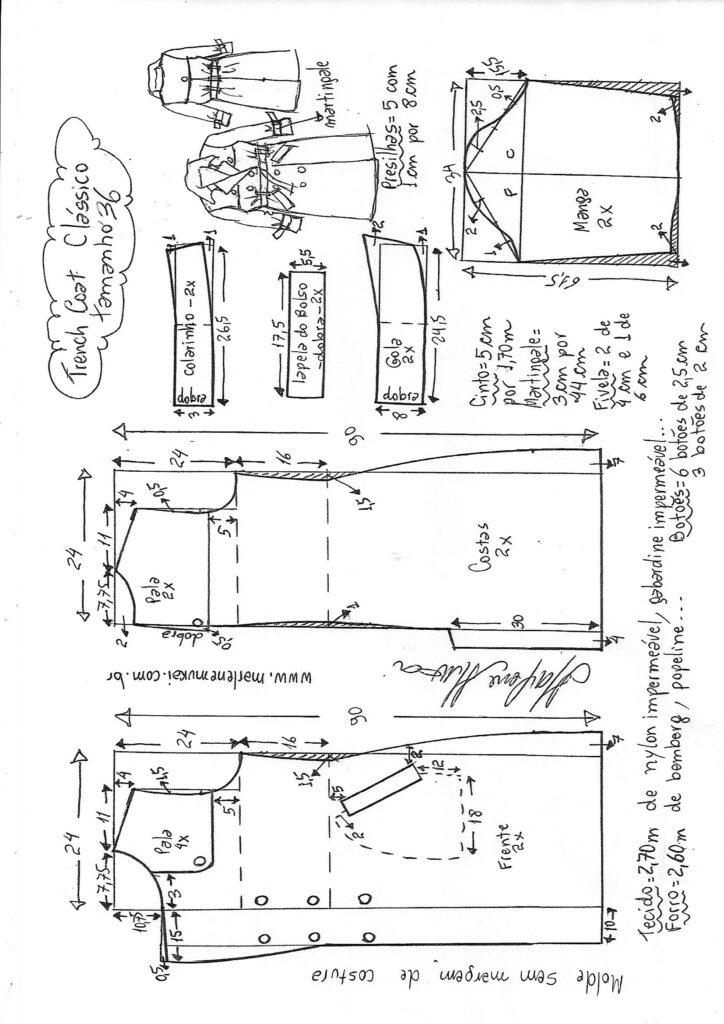 Trench Coat Clássico
tamanho 36
martingale
Presilhas = 5 com
1 cm por 8 cm
Colarinho - 2x
dobra
26,5
3
1
1
lapela do Bolso
- dobra - 2x
17,5
5,5
Gola
2x
dobra
24,5
8
2
1
34
15,5
0,5
2,5
C
P
2
1
Manga
2x
61,5
2
2
Cinto = 5 cm
por 1,70m
Martingale =
3 cm por
44 cm
Fivela = 2 de
4 cm e 1 de
6 cm
24
7,75
11
4
24
16
90
0,5
5
2
Pala
2x
dobra
0,5
1,5
2
Costas
2x
30
4
7
www.marlenemukai.com.br
24
7,75
11
4
24
16
90
1,5
5
Pala
4x
3
10,75
15
0,5
1,5
1,5
2
2
12
18
Frente
2x
10
7
Molde sem margem de costura
Tecido = 2,70m de nylon impermeável, gabardine impermeável...
Forro = 2,60m de bomberg, popeline...
Botões = 6 botões de 2,5 cm
3 botões de 2 cm